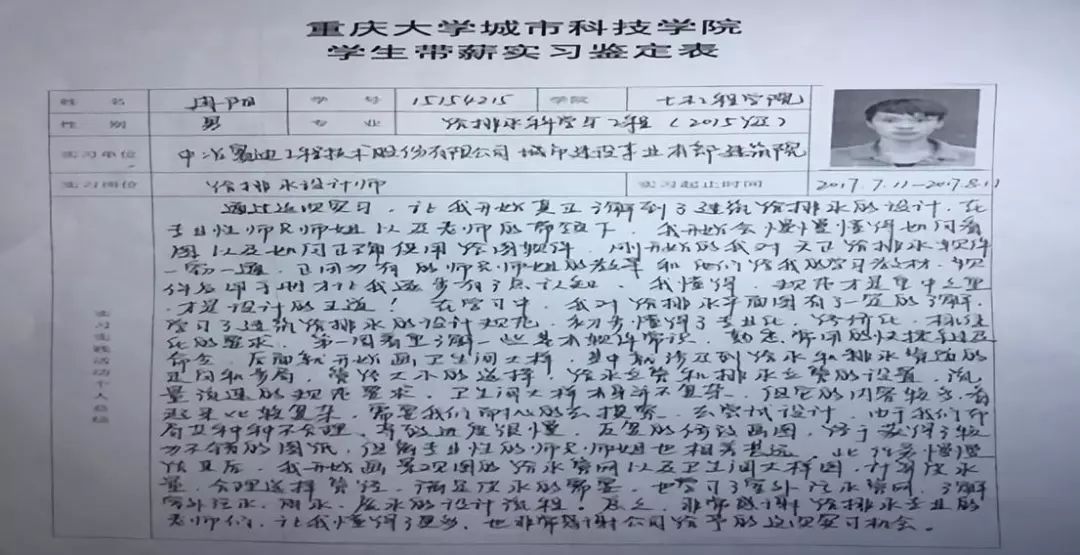 重庆大学城市科技学院
学生带薪实习鉴定表
姓 名 周阳 学 号 15154215 学院 土木工程学院
性 别 男 专 业 给排水科学与工程（2015级）
实习单位 中冶赛迪工程技术股份有限公司城市建设事业本部建筑院
实习岗位 给排水设计师 实习起止时间 2017.7.11-2017.8.11
实习实践活动个人总结
通过这次实习，让我开始真正了解到了建筑给排水的设计，在
专业性师兄师姐以及老师的带领下，我开始会慢慢懂得如何看
图以及如何正确使用绘图软件，刚开始的我对天正给排水软件
一窍一通，正因为有的师兄师姐的教导和他们给我的学习教材，
才让我逐步有了认知。我懂得，规范才是重中之重
才是设计的王道！在学习中，我对给排水平面图有了一定的了解，
学习了建筑给排水的设计规范，初步懂得了专业化，标准
化的要求。第一周看里了解一些基本软件常识，熟悉常用的快捷键及
命令，后面就开始画卫生间大样，其中就涉及到给水和排水管道的
走向和布局，管径大小的选择，给水立管和排水立管的设置，流
量流速的规范要求，卫生间大样本身并不复杂，但它的内容较多，看
起来比较复杂，需要我们耐心的去摸索，去尝试设计，由于我们布
局种种不合理，导致进度很慢，反复的修改画图，终于获得了较
为不错的图纸，但离专业性的师兄师姐也相差甚远。
我开始画景观图的给水管网以及卫生间大样图，计算
量，合理选择管径，满足的需要，也学习了室外给水管网，了解
室外污水，雨水，废水的设计流程。总之，非常感谢给排水专业的
老师们，让我懂得了更多，也非常感谢公司给予的这次实习机会。